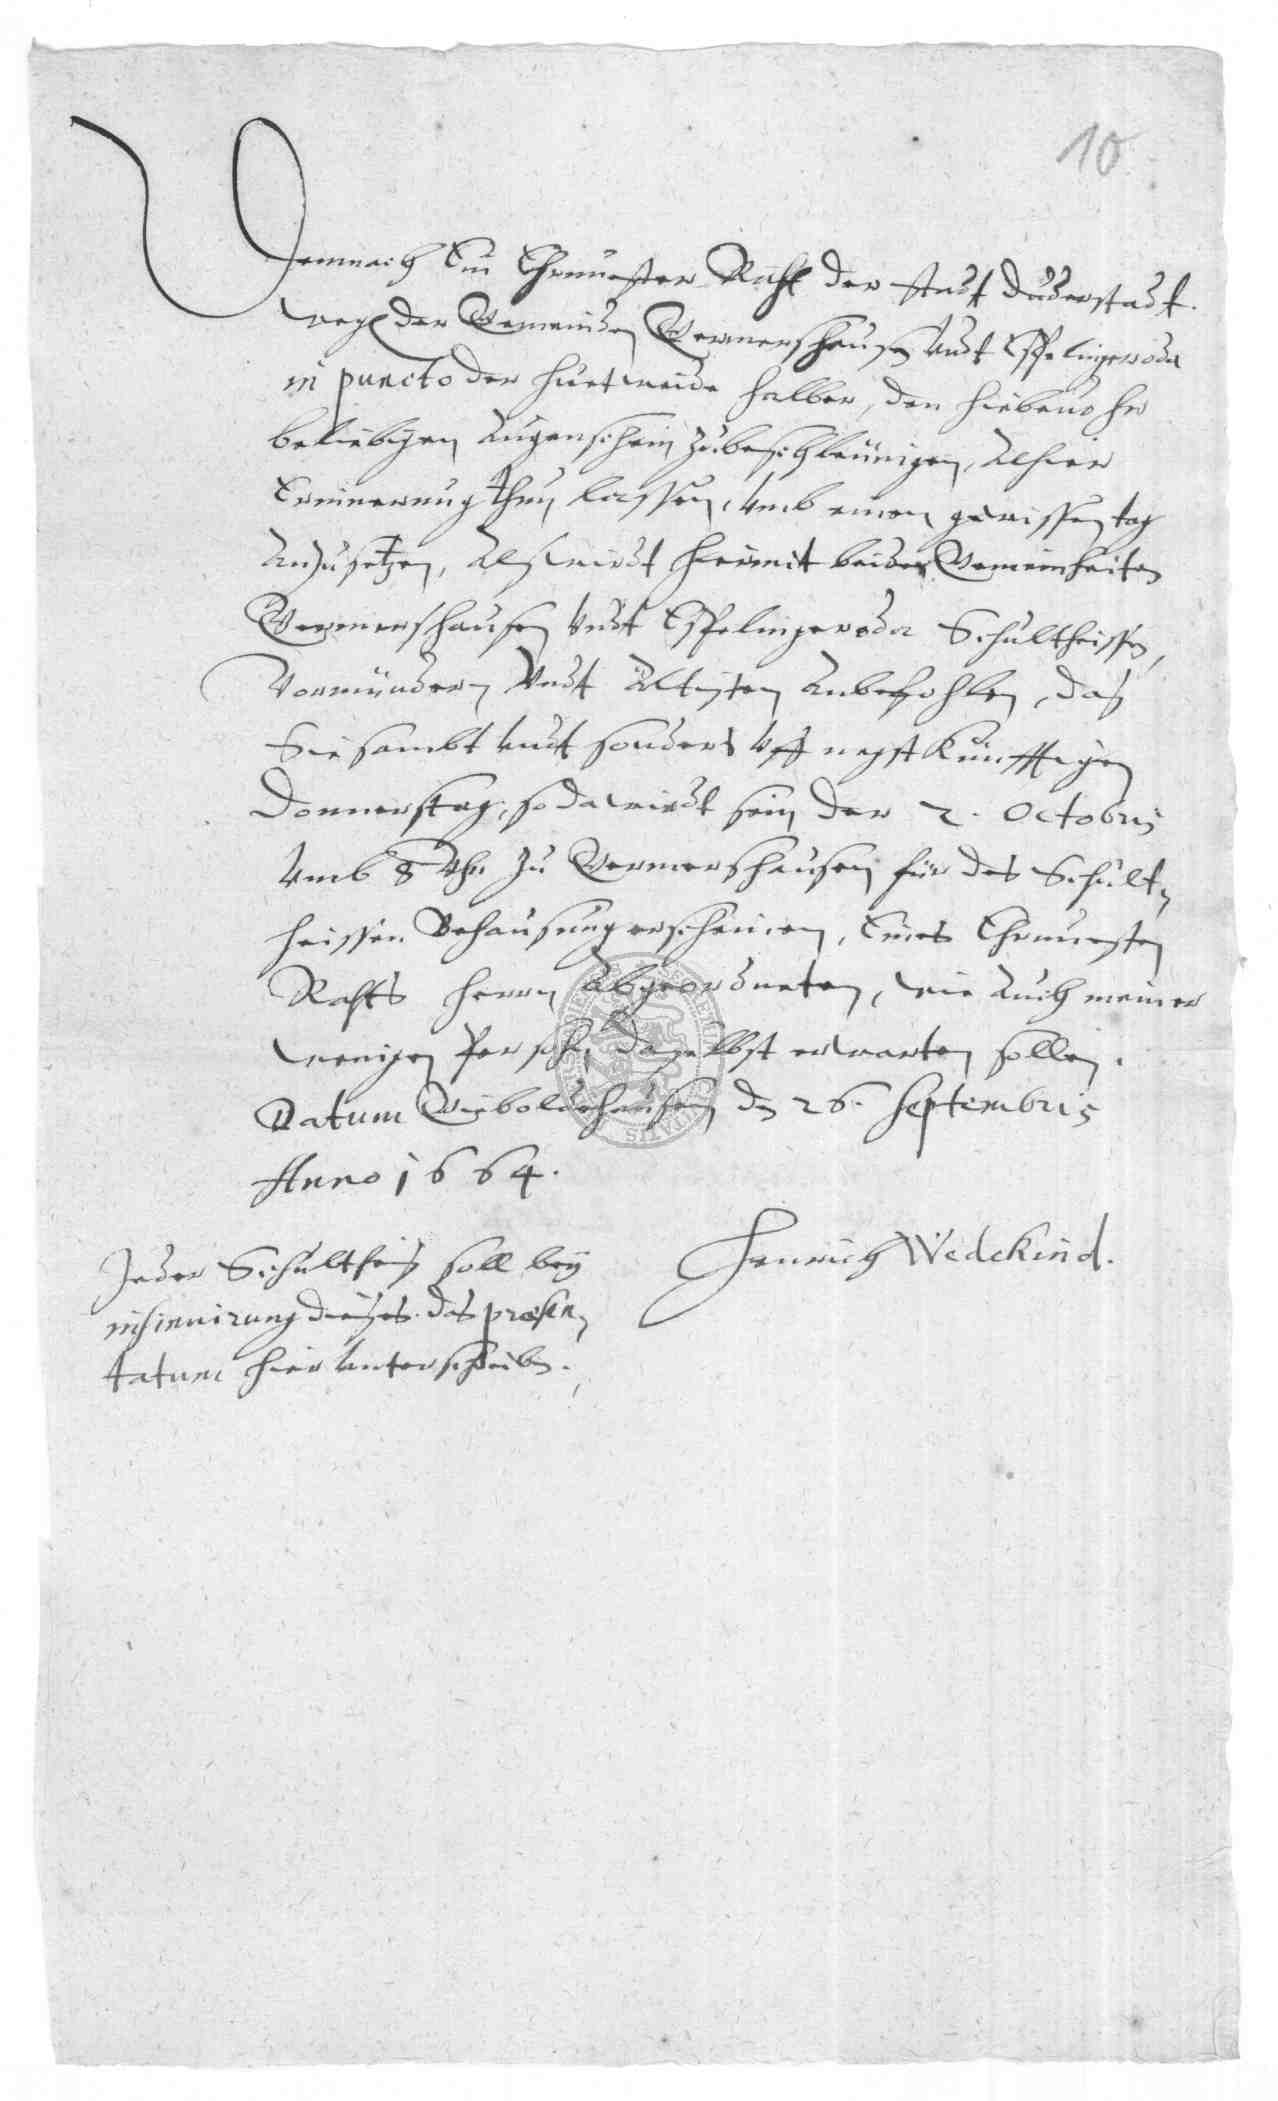 10
Demnach Ein Ehrnuester Raht der stadt Duderstadt
wegen der Gemeinden Germershausen vndt Esplingeroda
in puncto der huetweide halber, den hiebeuohr
beliebigen Augenschein zubeschleünigen, Alhier
Erinnerung thun lassen, vmb einen gewissen tag
Anzusetzen, Alß wirdt hiermit beider Gemeinheiten
Germershausen vndt Espelingeroda Schultheissen,
Vormündern vndt Altisten Anbefohlen, daß
Sie sambt vndt sonders vff negst Künfftigen
Donnerstag, so da wirdt sein der 2. Octobris
vmb 8 Vhr zu Germershausen für des Schult-
heissen Behausung erscheinen, Eines Ehrnuesten
Rahts herrn Abgeordneten, wie Auch meiner
wenigen Persohn daselbst erwarten sollen.
Datum Gieboldehausen den 26. Septembris
Anno 1664.
Henrich Wedekind.
Jeder Schultheiß soll bey
insinuirung dieses das præsen-
tatum hier unterschreiben.